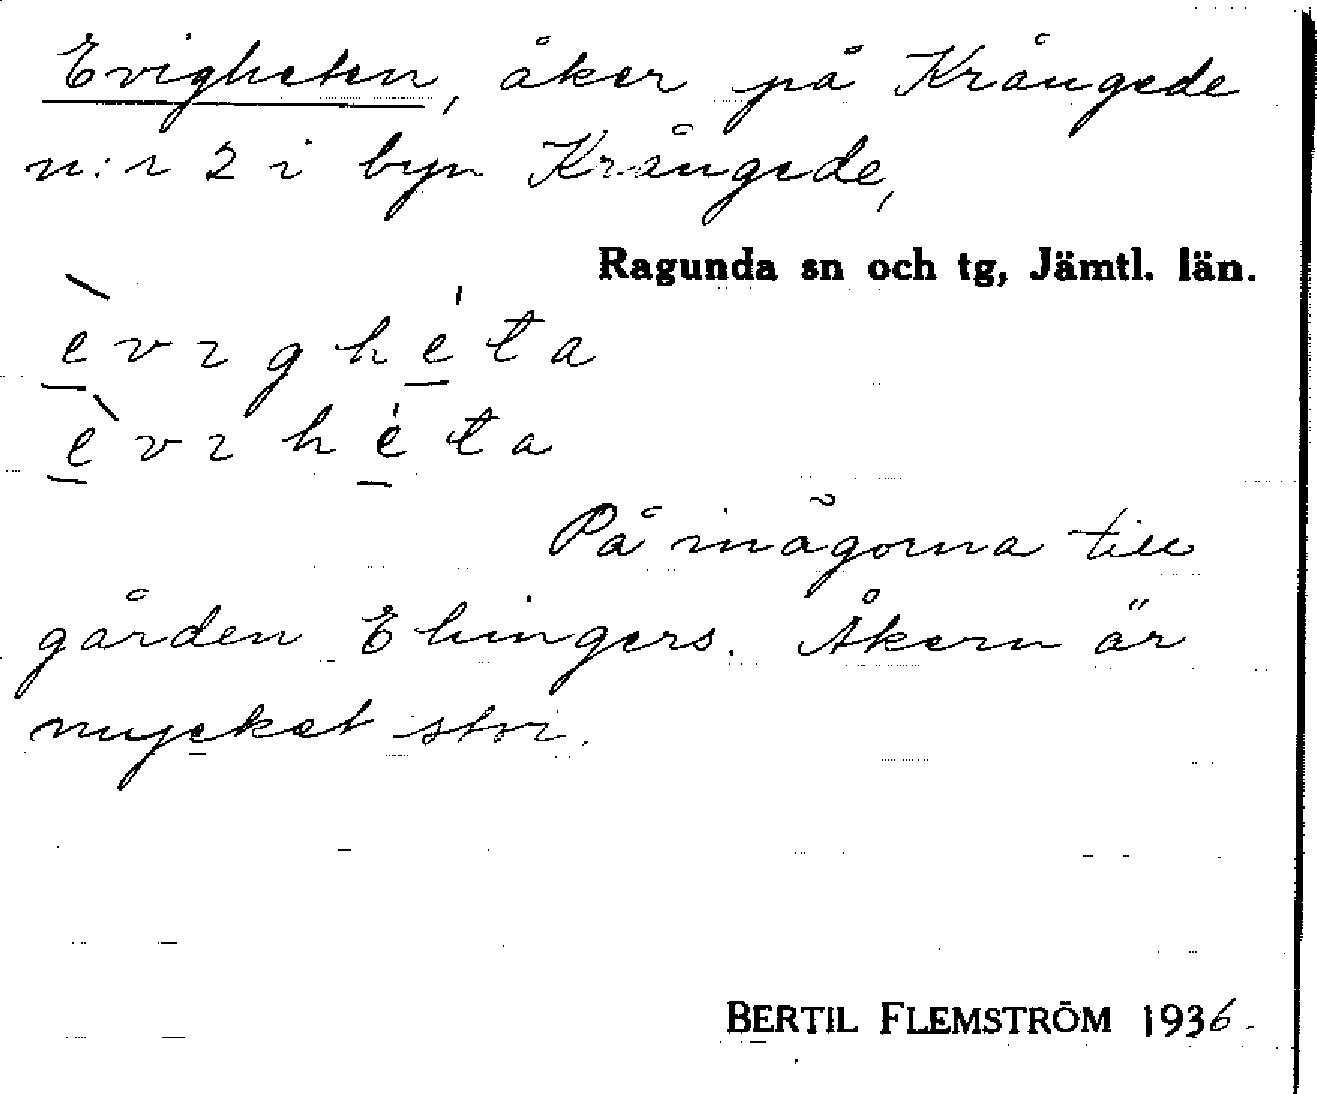 Evigheten, åker på Krångede
n:r 2 i byn Krångede,
Ragunda sn och tg, Jämtl. län.
è̲vıghé̲ta
è̲vıhé̲ta
På inägorna till
gården Ehingers. Åkern är
mycket stor.
BERTIL FLEMSTRÖM 1936.